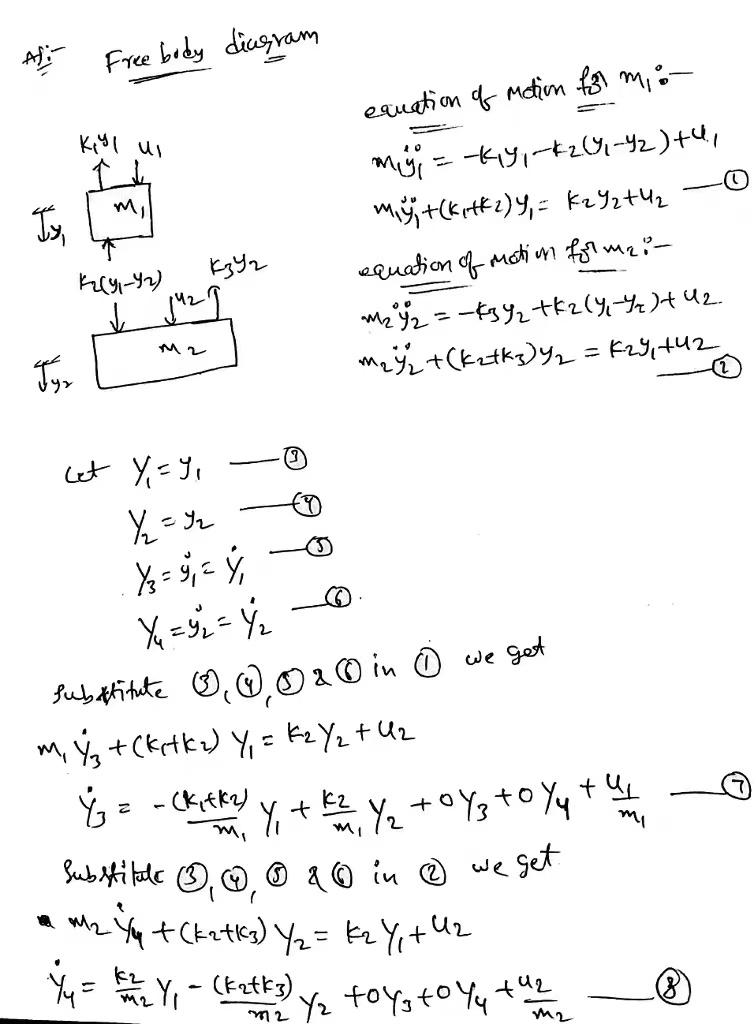 A):- Free body diagram
k₁y₁ u₁
m₁
y₁
k₂(y₁-y₂) u₂ k₃y₂
m₂
y₂
equation of Motion for m₁:-
m₁ÿ₁ = -k₁y₁-k₂(y₁-y₂)+u₁
m₁ÿ₁+(k₁+k₂)y₁ = k₂y₂+u₂ —①
equation of Motion for m₂:-
m₂ÿ₂ = -k₃y₂+k₂(y₁-y₂)+u₂
m₂ÿ₂+(k₂+k₃)y₂ = k₂y₁+u₂ —②
Let Y₁ = y₁ —③
Y₂ = y₂ —④
Y₃ = ẏ₁ = Ẏ₁ —⑤
Y₄ = ẏ₂ = Ẏ₂ —⑥
Substitute ③, ④, ⑤ & ⑥ in ① we get
m₁Ẏ₃+(k₁+k₂)Y₁ = k₂Y₂+u₂
Ẏ₃ = -(k₁+k₂)/m₁ Y₁ + k₂/m₁ Y₂ +0Y₃+0Y₄ + u₁/m₁ —⑦
Substitute ③, ④, ⑤ & ⑥ in ② we get
m₂Ẏ₄+(k₂+k₃)Y₂ = k₂Y₁+u₂
Ẏ₄ = k₂/m₂ Y₁ - (k₂+k₃)/m₂ Y₂ +0Y₃+0Y₄ + u₂/m₂ —⑧